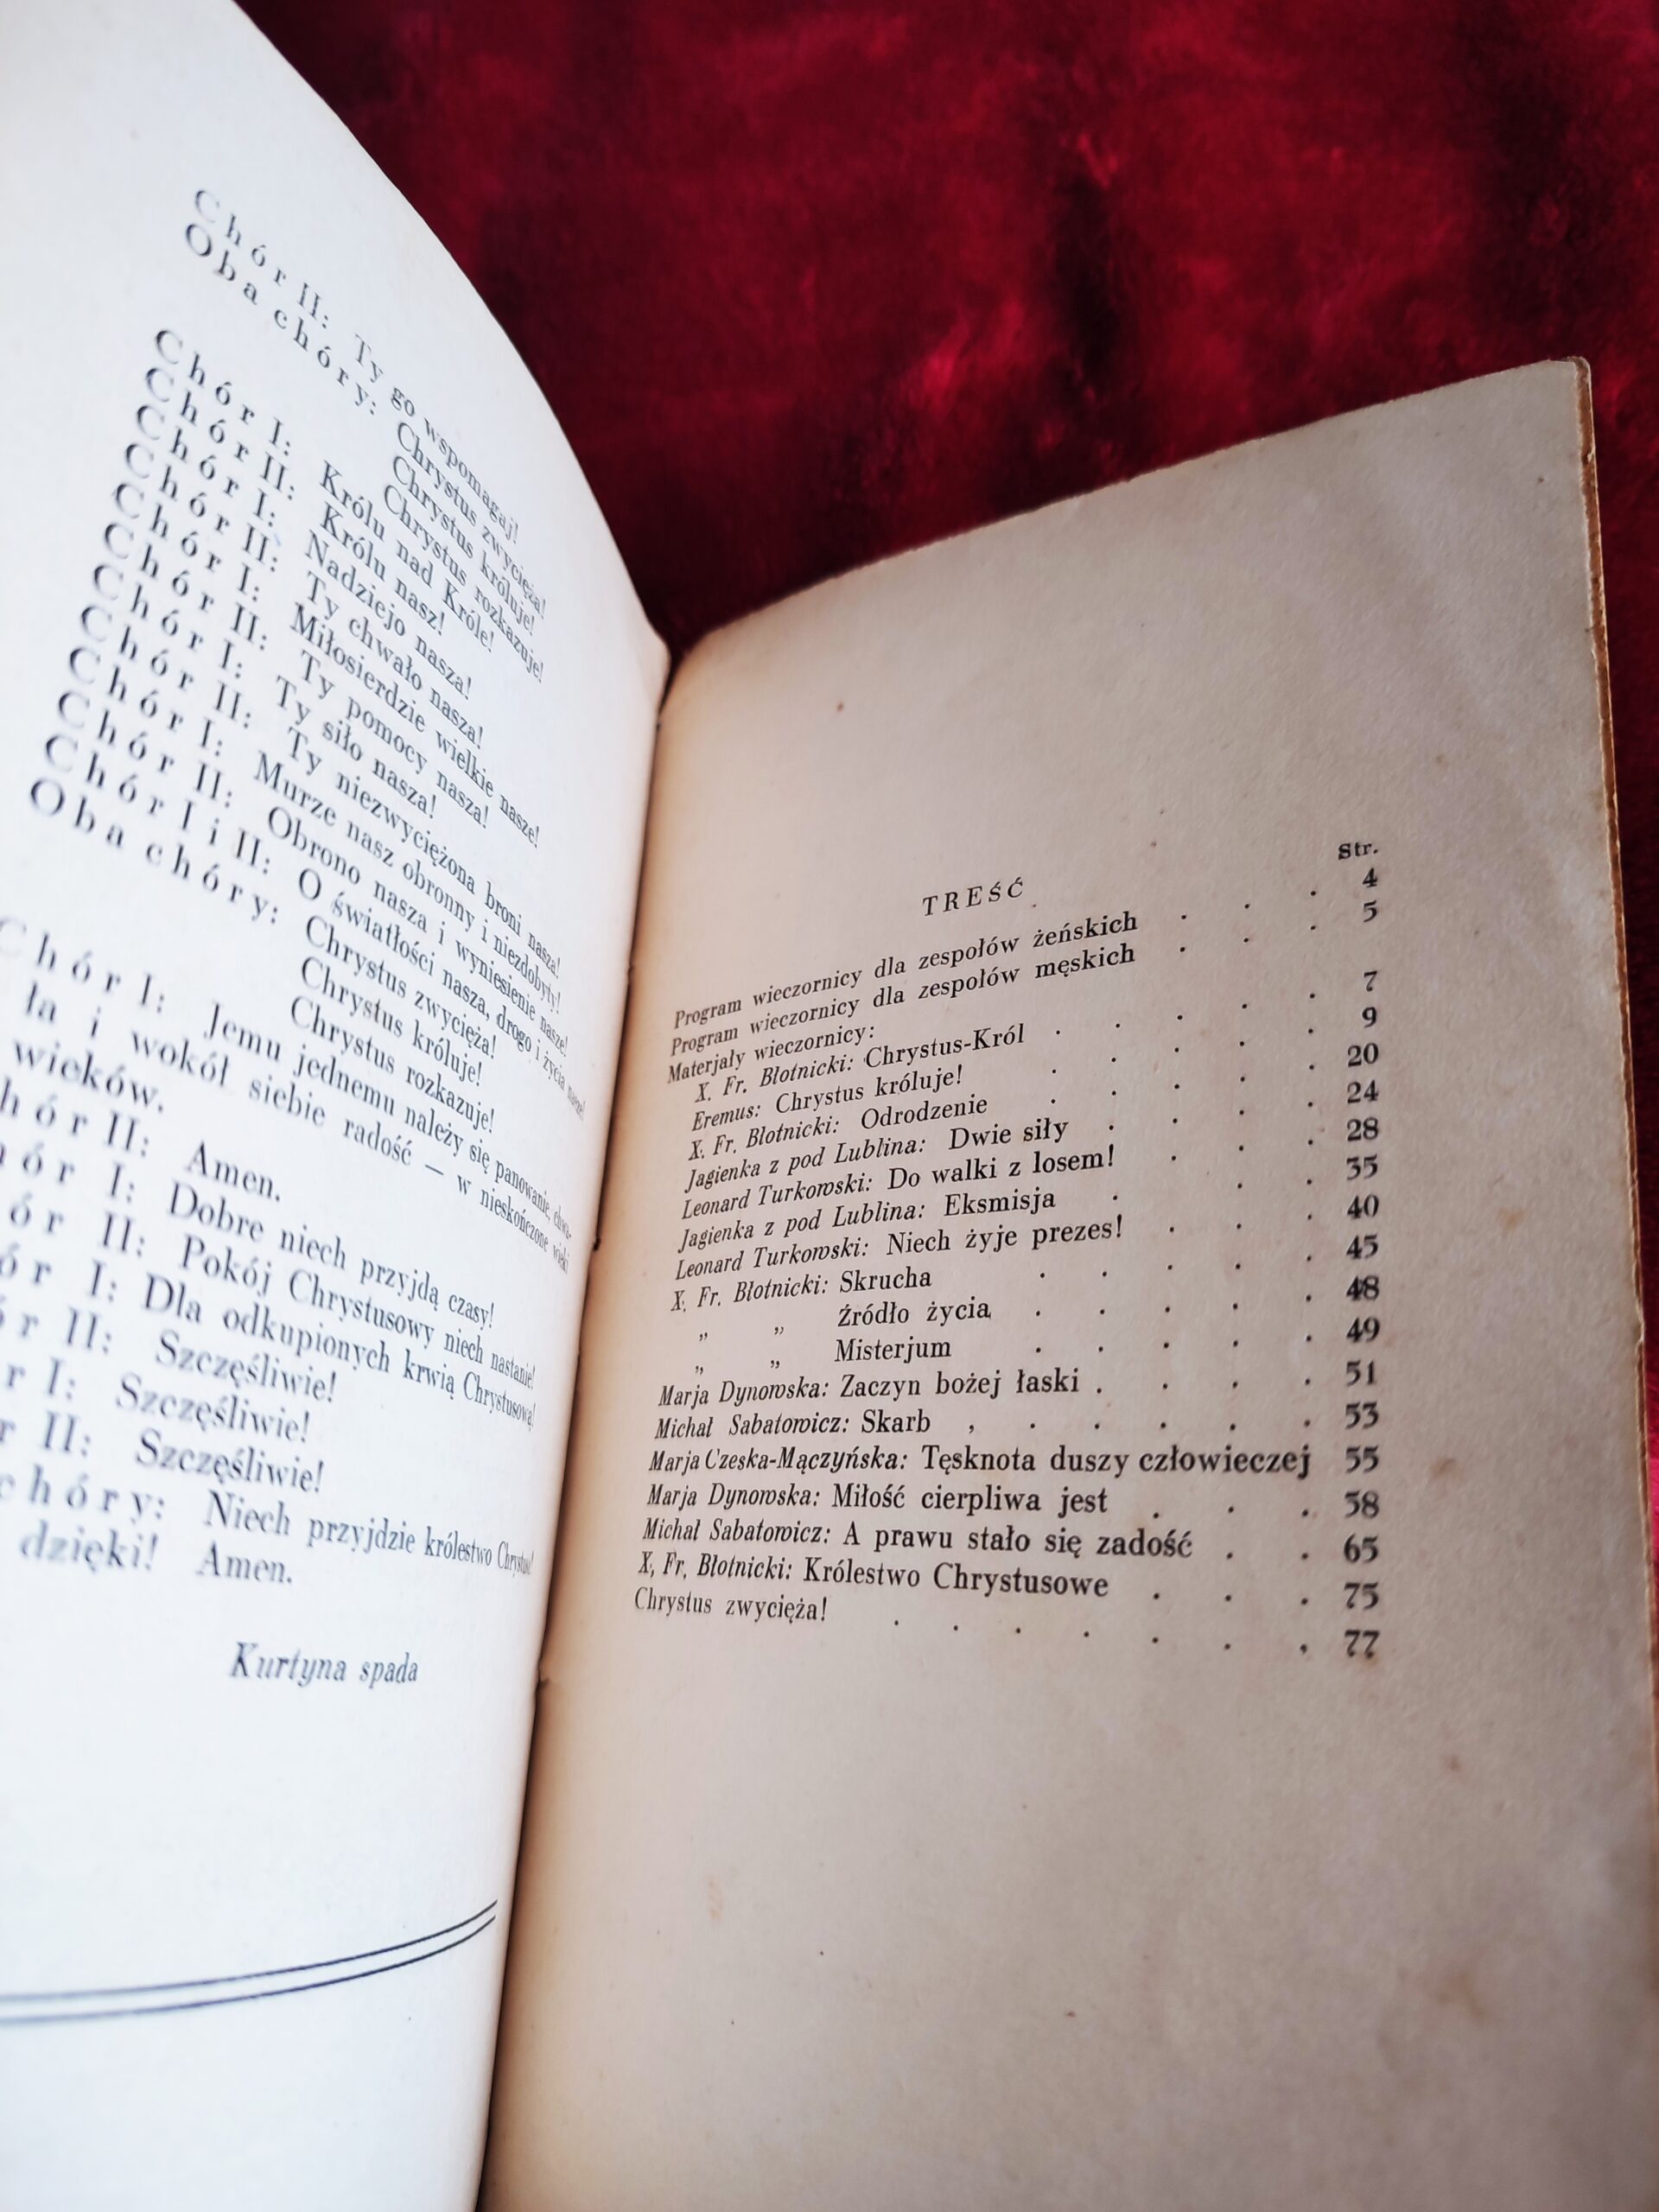 Chór II: Ty go wspomagaj!
Oba chóry: Chrystus zwycięża!
Chrystus króluje!
Chrystus rozkazuje!
Chór I: Królu nad Króle!
Chór II: Królu nasz!
Chór I: Nadziejo nasza!
Chór II: Ty chwało nasza!
Chór I: Miłosierdzie wielkie nasze!
Chór II: Ty pomocy nasza!
Chór I: Ty siło nasza!
Chór II: Ty niezwyciężona broni nasza!
Chór I: Murze nasz obronny i niezdobyty!
Chór II: Obrono nasza i wyniesienie nasze!
Chór I i II: O światłości nasza, drogo i życia nasze!
Oba chóry: Chrystus zwycięża!
Chrystus króluje!
Chrystus rozkazuje!
Chór I: Jemu jednemu należy się panowanie,
ła i wokół siebie radość — w nieskończone wieki
wieków.
hór II: Amen.
hór I: Dobre niech przyjdą czasy!
ór II: Pokój Chrystusowy niech nastanie!
ór I: Dla odkupionych krwią Chrystusową!
ór II: Szczęśliwie!
r I: Szczęśliwie!
r II: Szczęśliwie!
chóry: Niech przyjdzie królestwo
dzięki! Amen.
Kurtyna spada
TREŚĆ
Str.
Program wieczornicy dla zespołów żeńskich . . . 4
Program wieczornicy dla zespołów męskich . . . 5
Materjały wieczornicy:
X. Fr. Błotnicki: Chrystus-Król . . . . . 7
Eremus: Chrystus króluje! . . . . . 9
X. Fr. Błotnicki: Odrodzenie . . . . . 20
Jagienka z pod Lublina: Dwie siły . . . . 24
Leonard Turkowski: Do walki z losem! . . . 28
Jagienka z pod Lublina: Eksmisja . . . 35
Leonard Turkowski: Niech żyje prezes! . . . 40
X. Fr. Błotnicki: Skrucha . . . . . 45
„ „ Źródło życia . . . . . 48
„ „ Misterjum . . . . . 49
Marja Dynowska: Zaczyn bożej łaski . . . . 51
Michał Sabatowicz: Skarb , . . . . . 53
Marja Czeska-Mączyńska: Tęsknota duszy człowieczej 55
Marja Dynowska: Miłość cierpliwa jest . . . 58
Michał Sabatowicz: A prawu stało się zadość . . 65
X, Fr, Błotnicki: Królestwo Chrystusowe . . . 75
Chrystus zwycięża! . . . . . . , 77